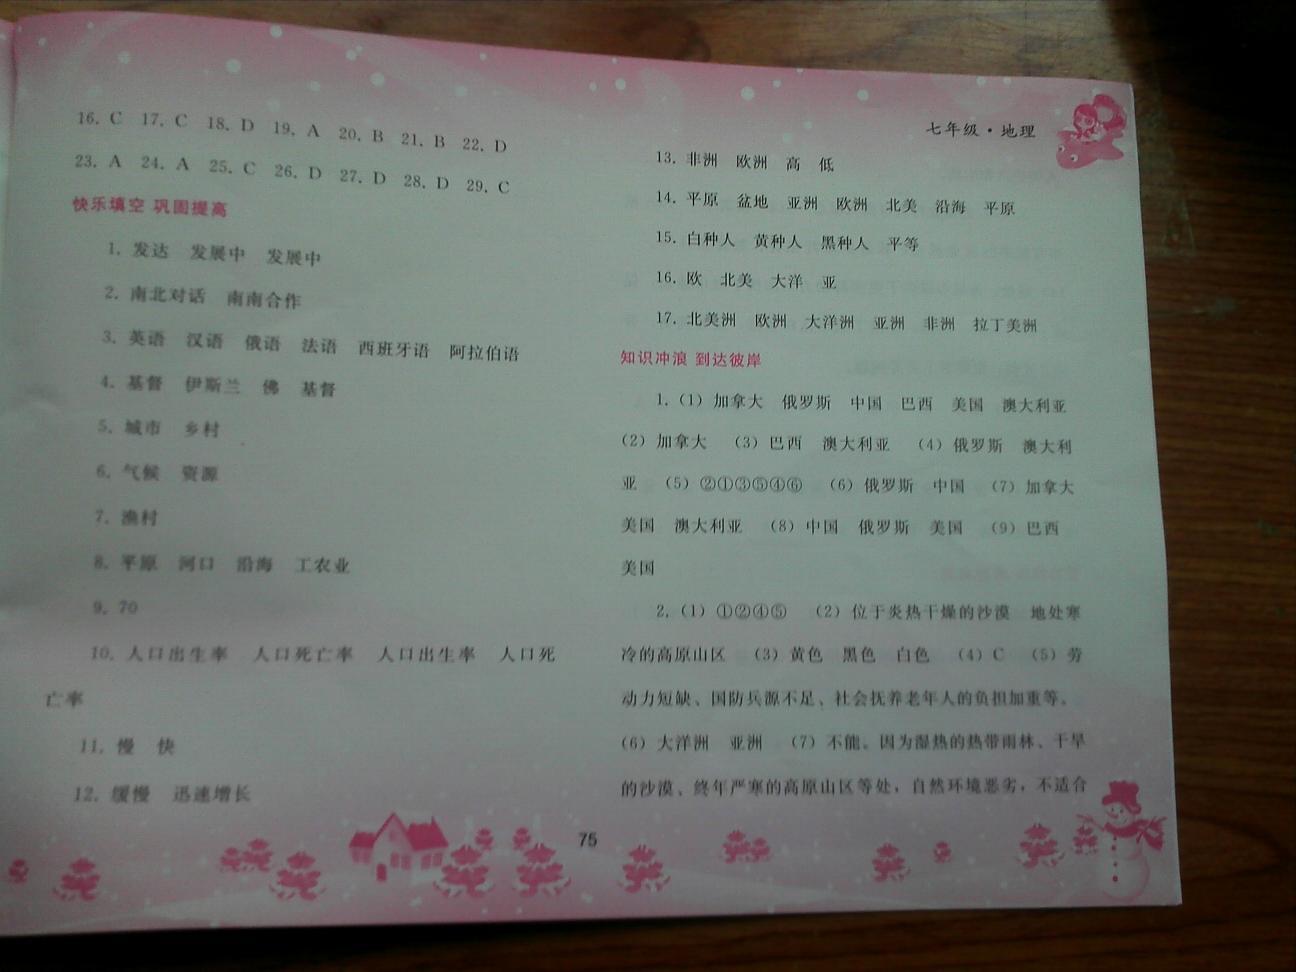 16. C 17. C 18. D 19. A 20. B 21. B 22. D
23. A 24. A 25. C 26. D 27. D 28. D 29. C
快乐填空 巩固提高
1. 发达 发展中 发展中
2. 南北对话 南南合作
3. 英语 汉语 俄语 法语 西班牙语 阿拉伯语
4. 基督 伊斯兰 佛 基督
5. 城市 乡村
6. 气候 资源
7. 渔村
8. 平原 河口 沿海 工农业
9. 70
10. 人口出生率 人口死亡率 人口出生率 人口死
亡率
11. 慢 快
12. 缓慢 迅速增长
七年级·地理
13. 非洲 欧洲 高 低
14. 平原 盆地 亚洲 欧洲 北美 沿海 平原
15. 白种人 黄种人 黑种人 平等
16. 欧 北美 大洋 亚
17. 北美洲 欧洲 大洋洲 亚洲 非洲 拉丁美洲
知识冲浪 到达彼岸
1. (1) 加拿大 俄罗斯 中国 巴西 美国 澳大利亚
(2) 加拿大 (3) 巴西 澳大利亚 (4) 俄罗斯 澳大利
亚 (5) ②①③⑤④⑥ (6) 俄罗斯 中国 (7) 加拿大
美国 澳大利亚 (8) 中国 俄罗斯 美国 (9) 巴西
美国
2. (1) ①②④⑤ (2) 位于炎热干燥的沙漠 地处寒
冷的高原山区 (3) 黄色 黑色 白色 (4) C (5) 劳
动力短缺、国防兵源不足、社会抚养老年人的负担加重等。
(6) 大洋洲 亚洲 (7) 不能。因为湿热的热带雨林、干旱
的沙漠、终年严寒的高原山区等处，自然环境恶劣，不适合
75